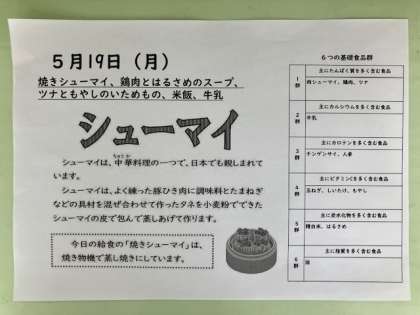 5月19日（月）
焼きシューマイ、鶏肉とはるさめのスープ、
ツナともやしのいためもの、米飯、牛乳
シューマイ
シューマイは、中華料理の一つで、日本でも親しまれて
います。
シューマイは、よく練った豚ひき肉に調味料とたまねぎ
などの具材を混ぜ合わせて作ったタネを小麦粉でできた
シューマイの皮で包んで蒸しあげて作ります。
今日の給食の「焼きシューマイ」は、
焼き物機で蒸し焼きにしています。
６つの基礎食品群
1群
主にたんぱく質を多く含む食品
肉シューマイ、鶏肉、ツナ
2群
主にカルシウムを多く含む食品
牛乳
3群
主にカロテンを多く含む食品
チンゲンサイ、人参
4群
主にビタミンCを多く含む食品
玉ねぎ、しいたけ、もやし
5群
主に炭水化物を多く含む食品
精白米、はるさめ
6群
主に脂質を多く含む食品
油